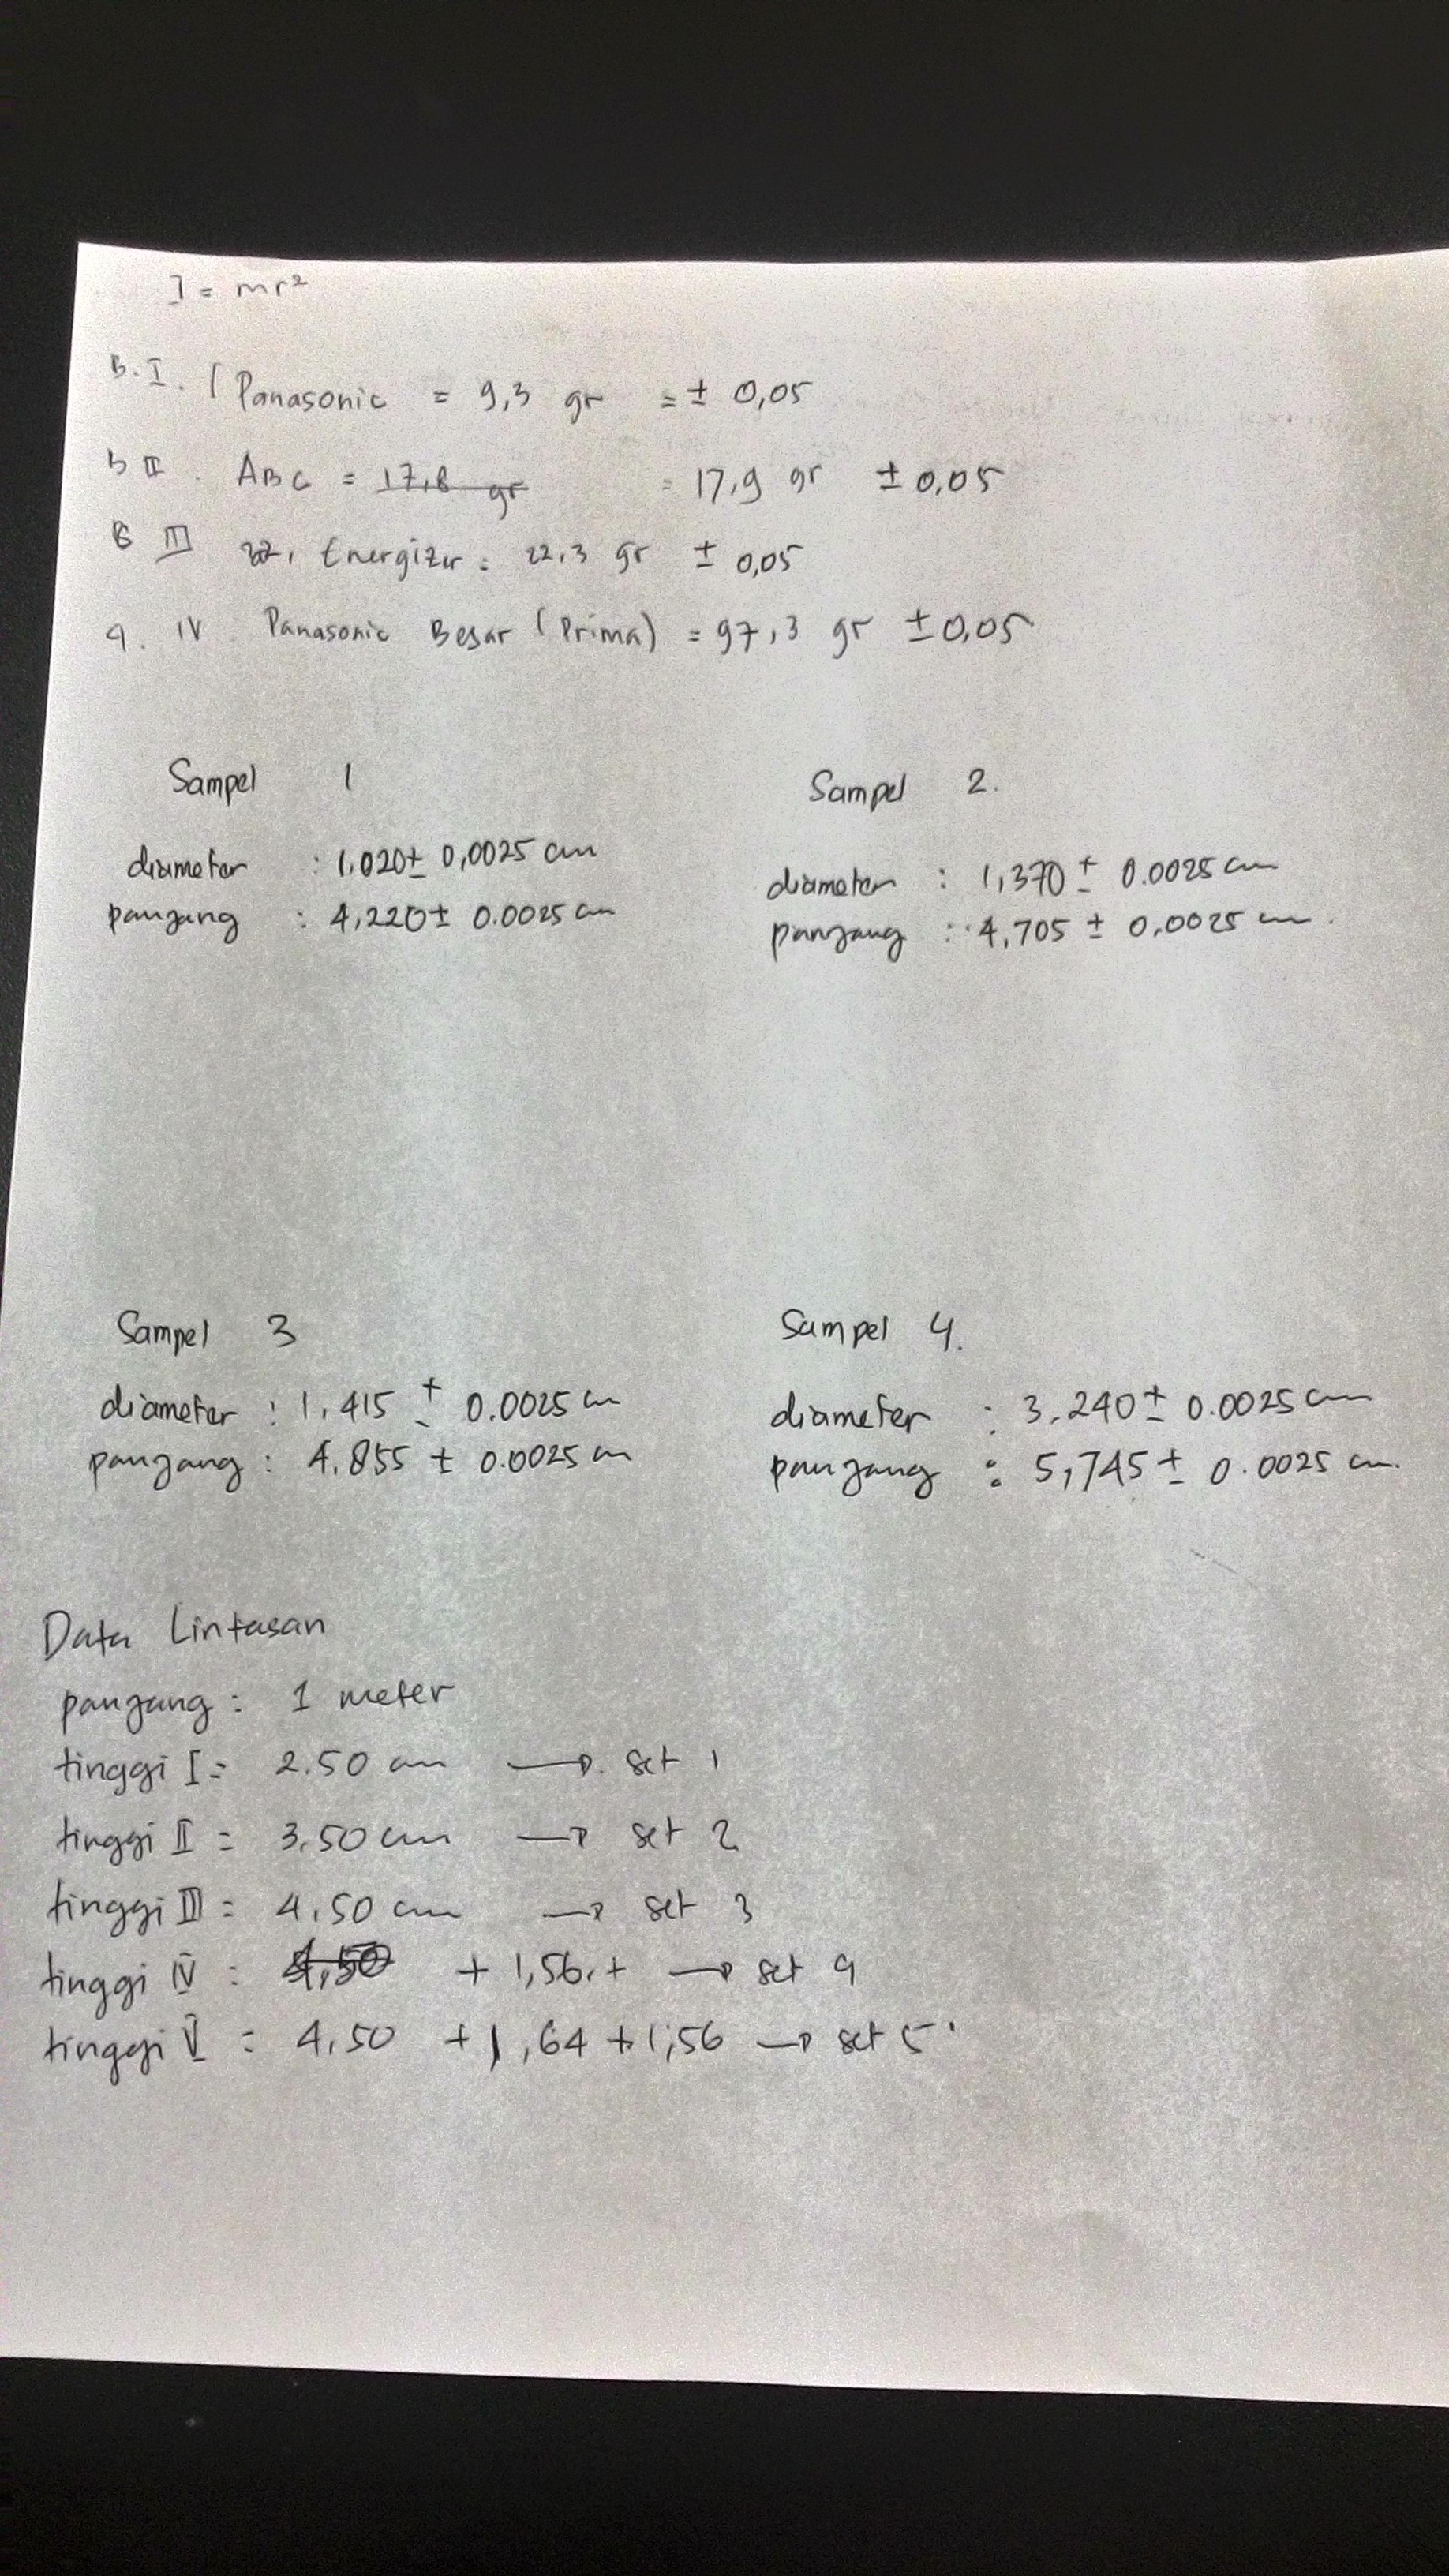 I = mr²
B. I. Panasonic = 9,3 gr = ± 0,05
b II. ABC = 17,8 gr = 17,9 gr ± 0,05
B III Energizer : 22,3 gr ± 0,05
4. IV Panasonic Besar (Prima) = 97,3 gr ± 0,05
Sampel 1
diameter : 1,020 ± 0,0025 cm
panjang : 4,220 ± 0.0025 cm
Sampel 2.
diameter : 1,370 ± 0.0025 cm
panjang : 4,705 ± 0,0025 cm.
Sampel 3
diameter : 1,415 ± 0.0025 cm
panjang : 4,855 ± 0.0025 cm
Sampel 4.
diameter : 3,240 ± 0.0025 cm
panjang : 5,745 ± 0.0025 cm.
Data Lintasan
panjang : 1 meter
tinggi I = 2.50 cm → set 1
tinggi II = 3,50 cm → set 2
tinggi III = 4,50 cm → set 3
tinggi IV : 4,50 + 1,56 + → set 4
tinggi V = 4,50 + 1,64 + 1,56 → set 5